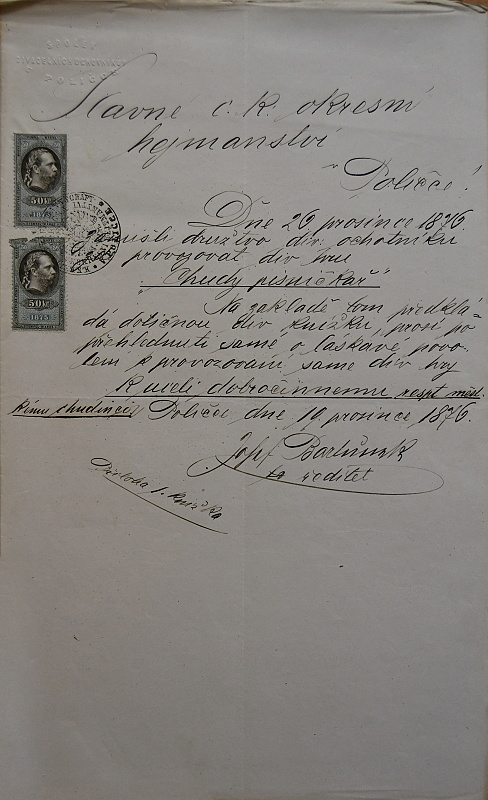 SPOLEK
DIVADELNÍCH OCHOTNÍKŮ
POLIČCE
Slavné c. k. okresní
hejmanství
v Poličce!
50 kr
1875
50 kr
1875
Dne 26 prosince 1876
mislí družstvo div. ochotníku
provozovat div hru
"Chudy pisničkař"
Na zakladě tom předklá-
dá dotičnou div knižku, prosí po
přehlednutí samé o laskavé povo-
lení k provozovaní samé div hry
K učelj dobročinnemu resp městs
kému chudinci,
Poličce dne 19. prosince 1876.
Josef Bartůněk
ta ředitel
Přiloha 1. knižka